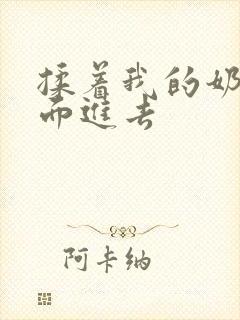 揉着我的奶
而进去
阿卡纳